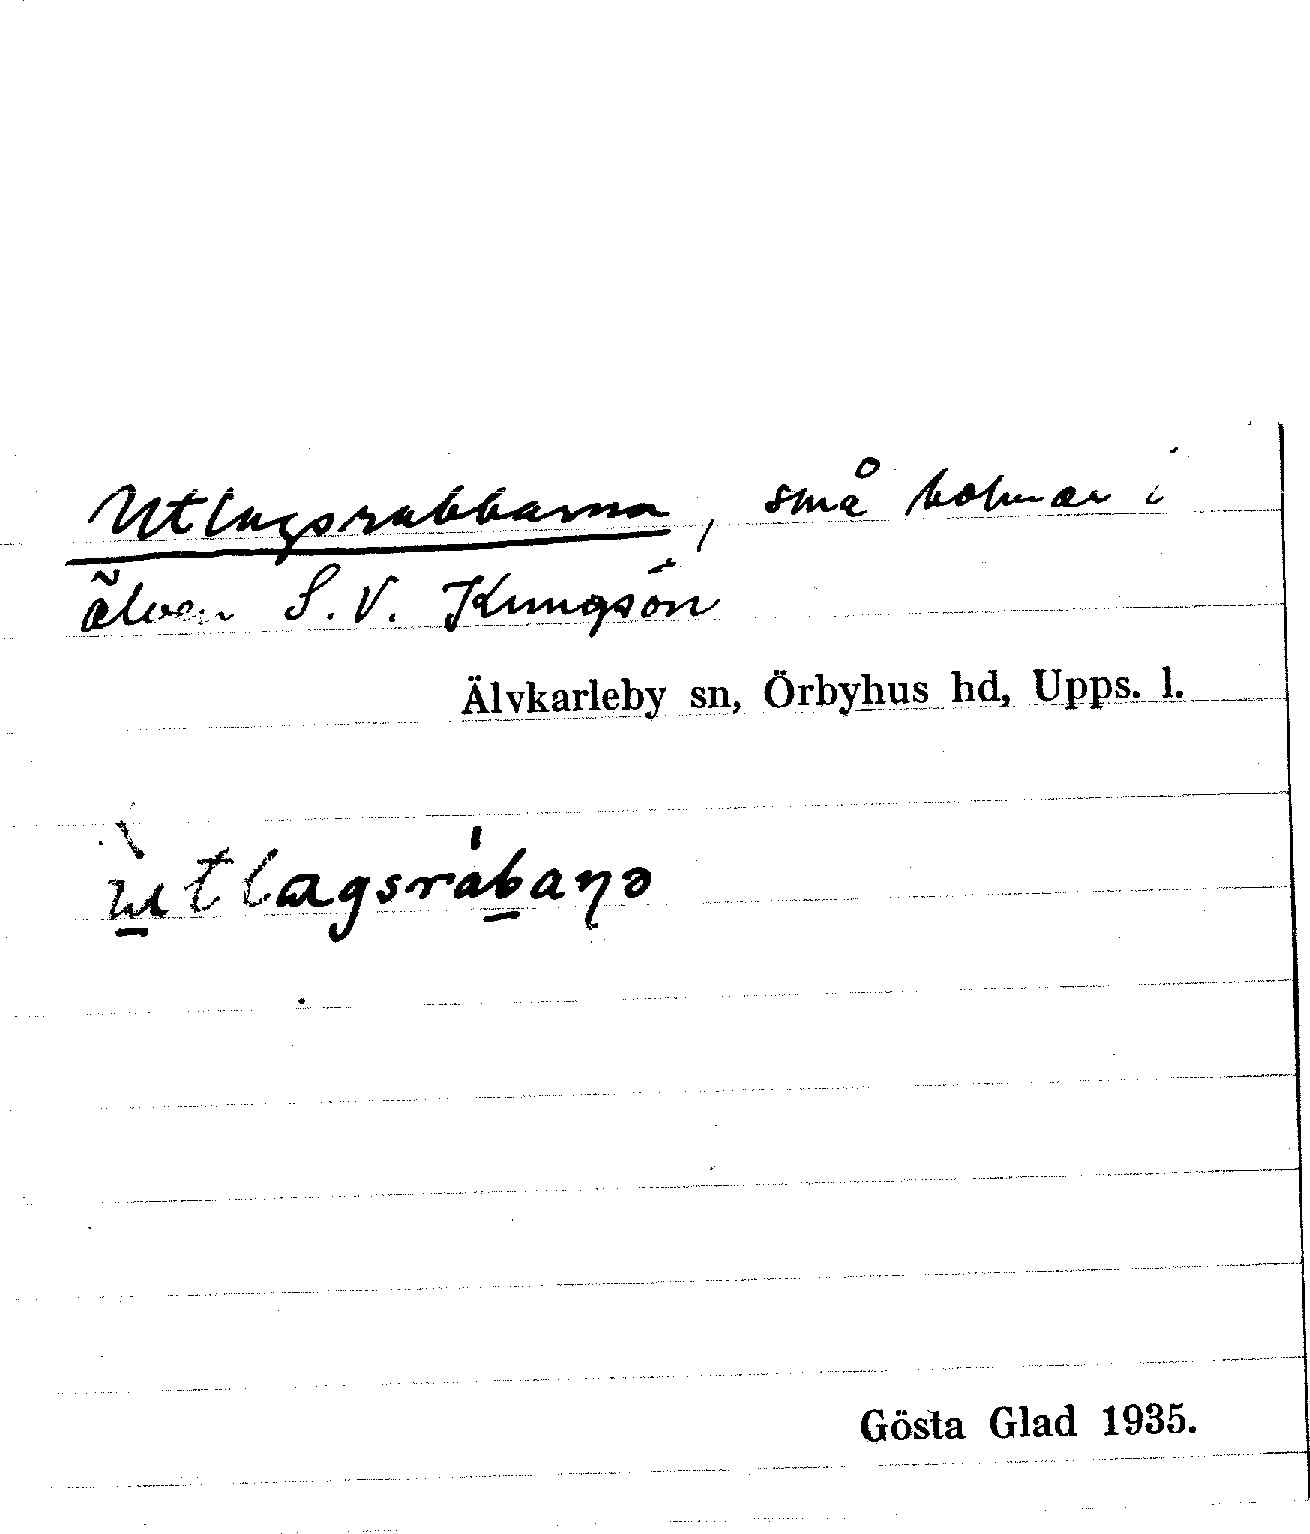 Utlagsrabbarna, små holmar i
älven S.V. Kungsön
Älvkarleby sn, Örbyhus hd, Upps. l.
ɯ̠̀tlagsráb̠aɳə
Gösta Glad 1935.